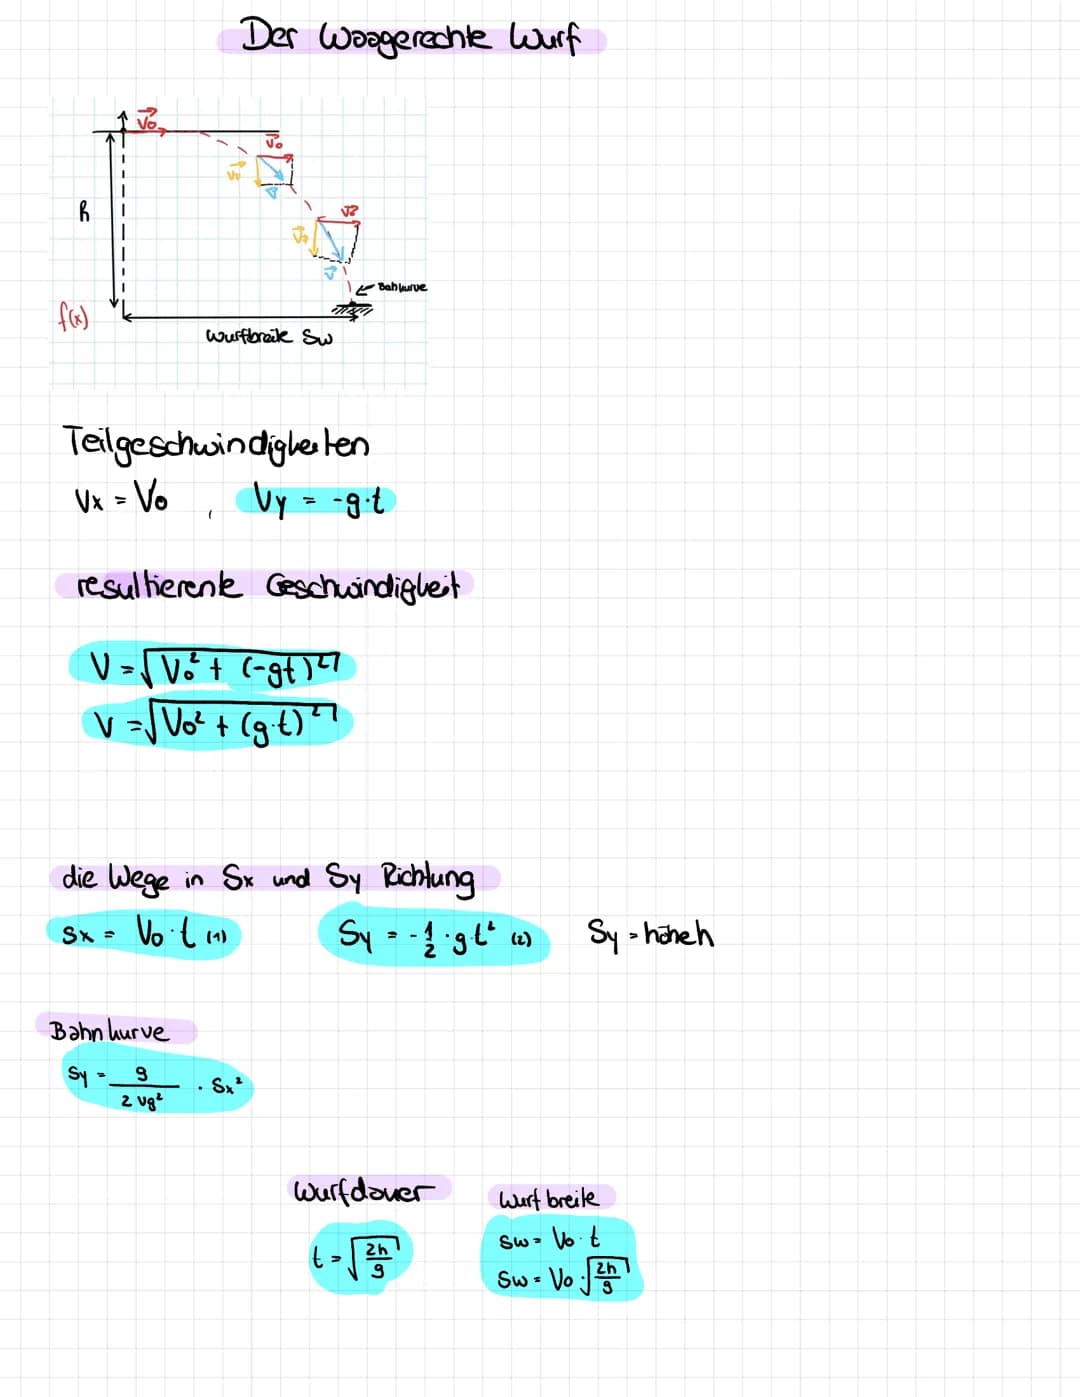 Der Waagerechte Wurf
V₀
V₀
V₀
h
V₀
V
V₀
V₀
V
Bahkurve
f(x)
Wurfbreite Sw
Teilgeschwindigkeiten
Vx = V₀ , Vy = -g·t
resultierente Geschwindigkeit
V = √V₀² + (-gt)²
V = √V₀² + (g·t)²
die Wege in Sx und Sy Richtung
Sx = V₀·t (1) Sy = - 1/2 · gt² (2) Sy = höheh
Bahnkurve
Sy = g / 2 vg² · Sx²
Wurfdauer Wurfbreite
t = √2h/g
Sw = V₀ · t
Sw = V₀ · √2h/g